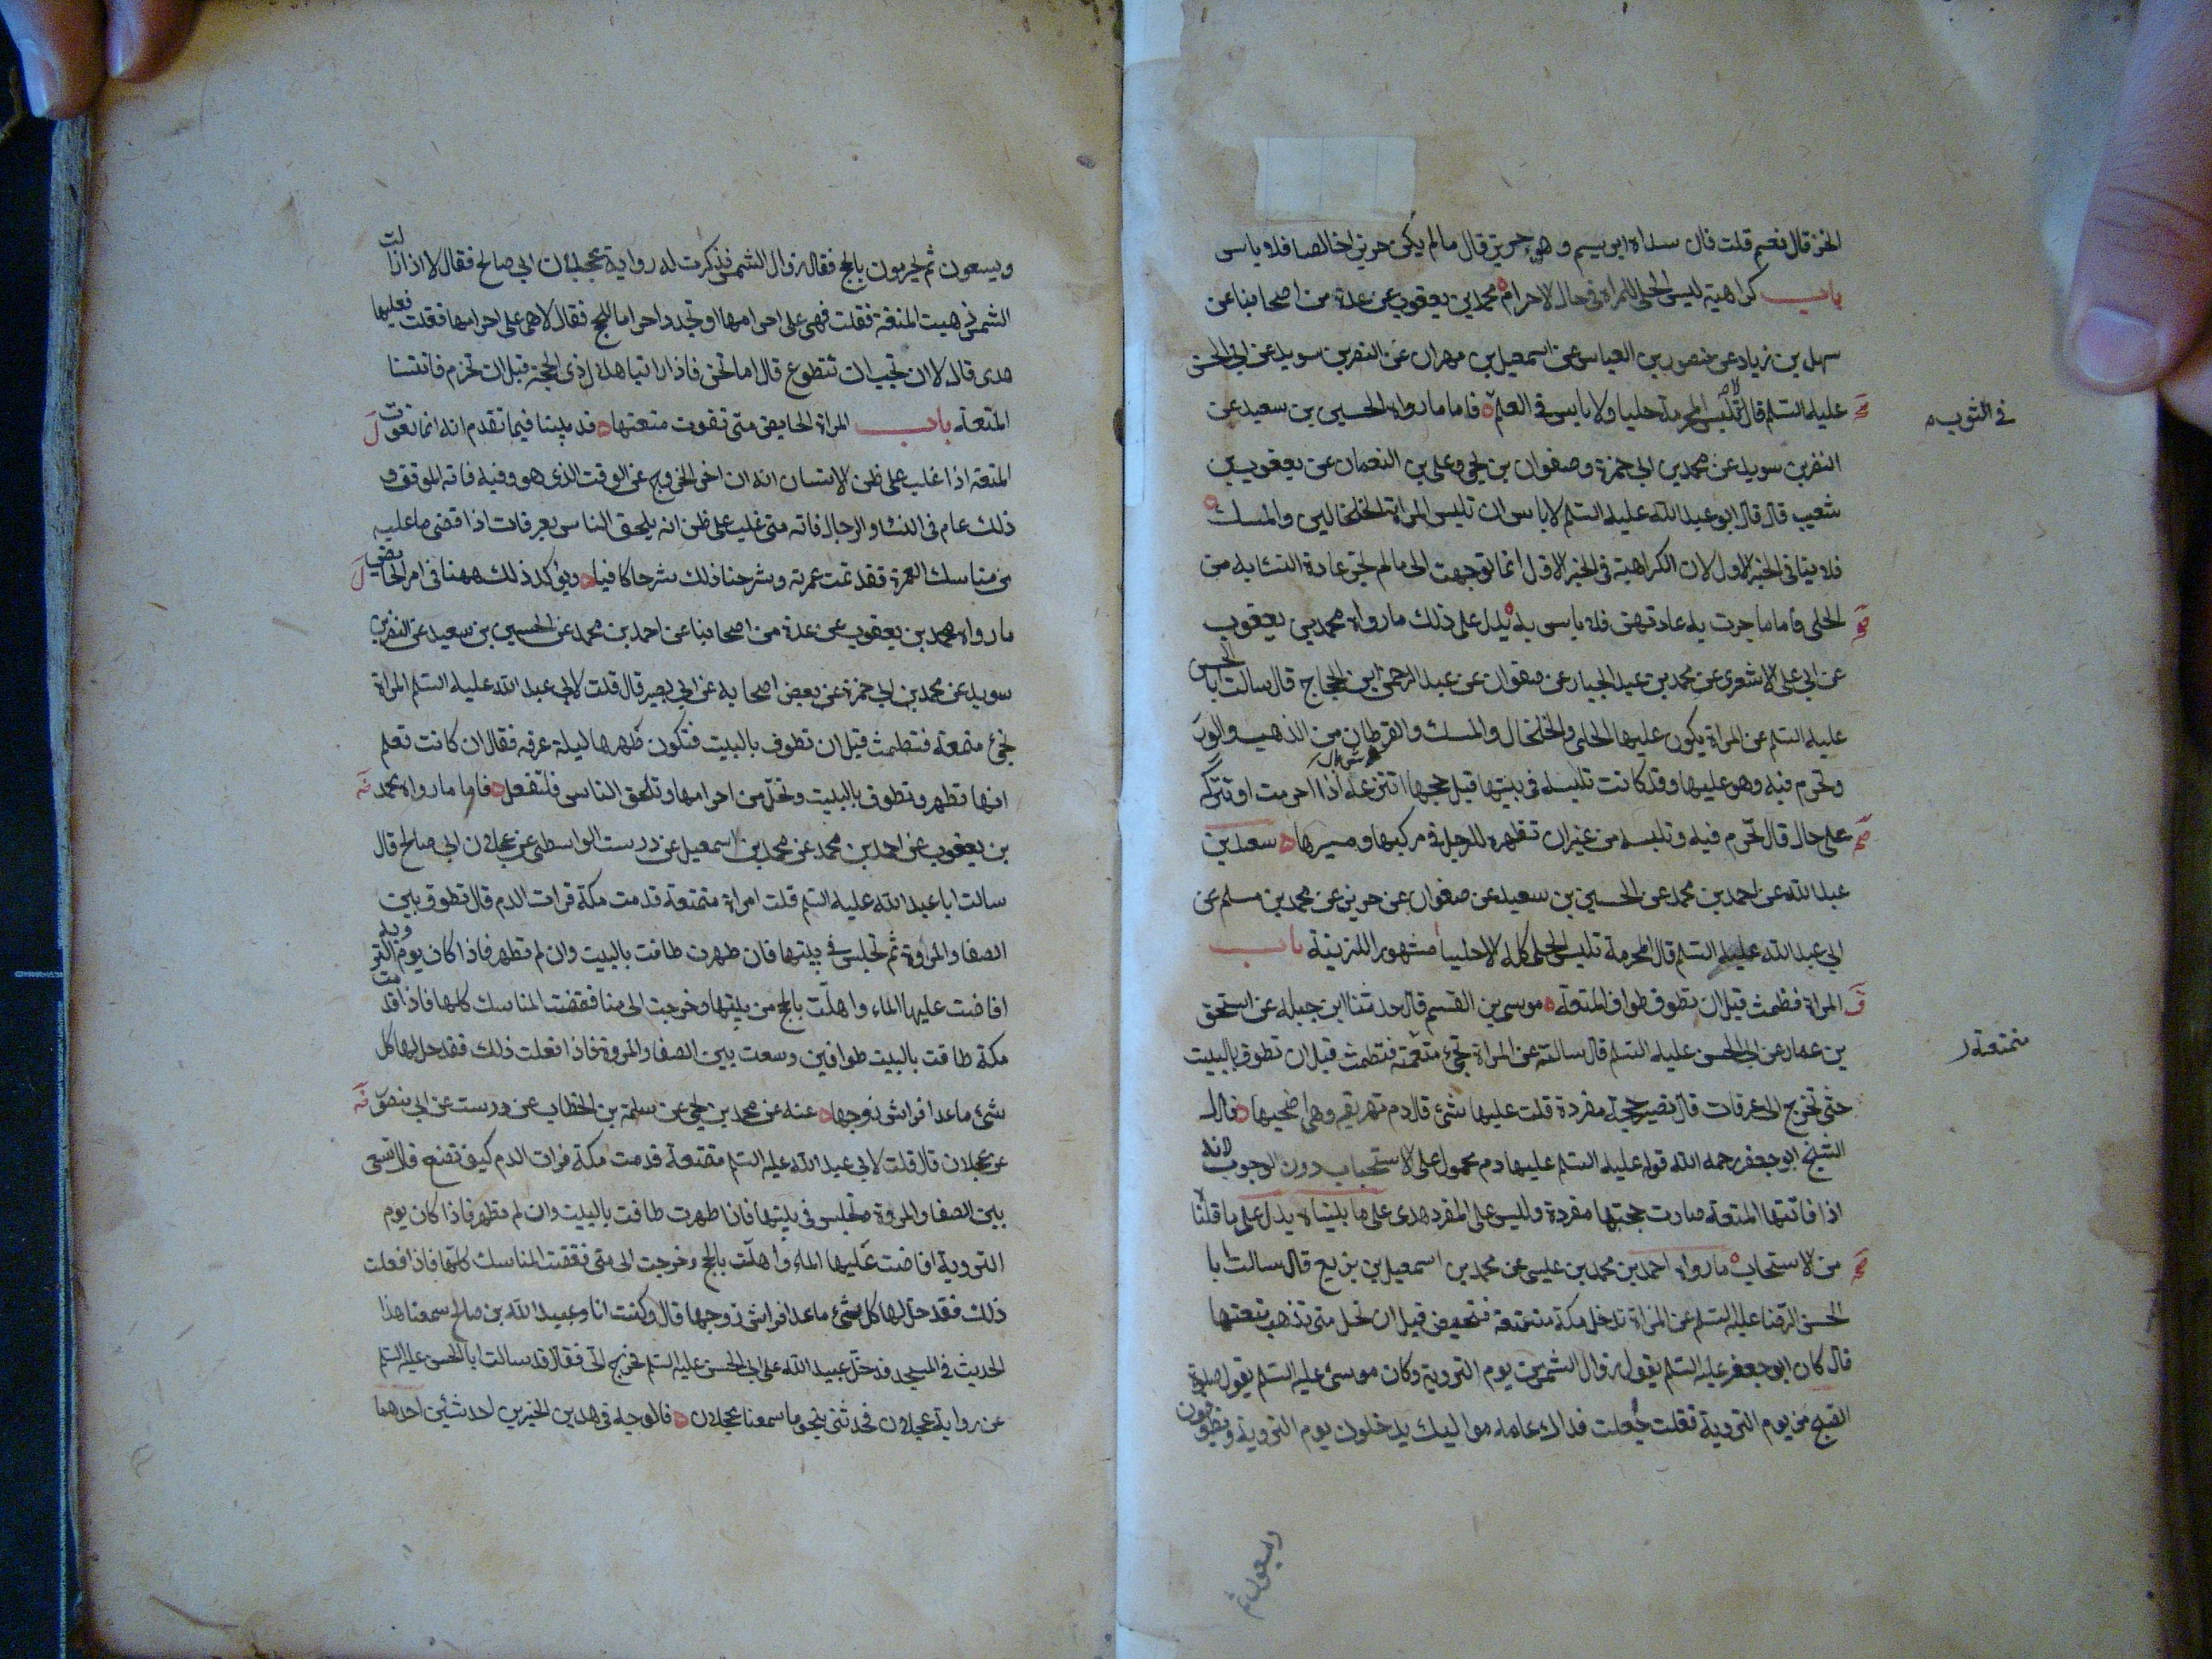 الخز قال نعم قلت فان سداه ابريسم وهو حرير قال ما لم يكن حريرا خالصا فلا باس
باب كراهية لبس الحلى للمراة فى حال الاحرام محمد بن يعقوب عن عدة من اصحابنا عن
سهل بن زياد عن منصور بن العباس عن اسمعيل بن مهران عن النضر بن سويد عن ابى الحسن
عليه السلم قال تلبس المحرمة حليا ولا باس فى العلم فاما ما رواه الحسين بن سعيد عن
فى الثوب
النضر بن سويد عن محمد بن ابى حمزة وصفوان بن يحيى وعلى بن النعمان عن يعقوب بن
شعيب قال قال ابو عبد الله عليه السلم لا باس ان تلبس المراة الخلخالين والمسك
فلا ينافى الخبر الاول لان الكراهية فى الخبر الاول انما توجهت الى ما لم يجر عادة النساء به من
الحلى فاما ما جرت به عادتهن فلا باس به يدل على ذلك ما رواه محمد بن يعقوب
عن ابى على الاشعرى عن محمد بن عبد الجبار عن صفوان عن عبد الرحمن ابن الحجاج قال سالت ابا الحسن
عليه السلم عن المراة يكون عليها الحلى والخلخال والمسك والقرطان من الذهب والورق
وتحرم فيه وهو عليها وقد كانت تلبسه فى بيتها قبل حجها اتنزعه اذا احرمت او تتركه
على حال قال تحرم فيه وتلبسه من غير ان تظهره للرجل فى مركبها ومسيرها سعد بن
عبد الله عن احمد بن محمد عن الحسين بن سعيد عن صفوان عن حريز عن محمد بن مسلم عن
ابى عبد الله عليه السلم قال المحرمة تلبس الحلى كله الا حليا مشهورا للزينة باب
المراة فطمث قبل ان تطوف طواف المتعة موسى بن القسم قال حدثنا ابن جبلة عن اسحق
بن عمار عن ابى الحسن عليه السلم قال سالته عن المراة تجىء متعة فتطمث قبل ان تطوف بالبيت
متمتعة
حتى تخرج الى عرفات قال تصير حجة مفردة قلت عليها شىء قال دم تهريقه وهى اضحيتها قال
الشيخ ابو جعفر رحمه الله قوله عليه السلم عليها دم محمول على الاستحباب دون الوجوب لانه
اذا فاتتها المتعة صارت حجتها مفردة وليس على المفرد هدى على ما بيناه يدل على ما قلنا
من الاستحباب ما رواه احمد بن محمد بن عيسى عن محمد بن اسمعيل بن بزيع قال سالت ابا
الحسن الرضا عليه السلم عن المراة تدخل مكة متمتعة فتحيض قبل ان تحل متى تذهب متعتها
قال كان ابو جعفر عليه السلم يقول زوال الشمس من يوم التروية وكان موسى عليه السلم يقول صلوة
الصبح من يوم التروية فقلت جعلت فداك عامة مواليك يدخلون يوم التروية ويطوفون
ويسعون ثم
ويسعون ثم يحرمون بالحج فقال زوال الشمس فذكرت له رواية عجلان ابى صالح فقال لا اذا زالت
الشمس ذهبت المتعة فقلت فهى على احرامها او تجدد احراما للحج فقال لا هى على احرامها فقلت فعليها
هدى قال لا الا ان تحب ان تتطوع قال اما نحن فاذا راينا هلال ذى الحجة قبل ان نحرم فاتتنا
المتعة باب المراة الحايض متى تفوت متعتها قد بينا فيما تقدم انه انما تفوت
المتعة اذا غلب على ظن الانسان انه ان اخر الخروج عن الوقت الذى هو وفيه فاته الموقف و
ذلك عام فى النساء والرجال فاته متى غلب على ظن انه يلحق الناس بعرفات اذا قضى ما عليه
من مناسك العمرة فقد تمت عمرته وشرحنا ذلك شرحا كافيا ويؤكد ذلك ههنا فى امر الحايض
ما رواه محمد بن يعقوب عن عدة من اصحابنا عن احمد بن محمد عن الحسين بن سعيد عن النضر بن
سويد عن محمد بن ابى حمزة عن بعض اصحابه عن ابى بصير قال قلت لابى عبد الله عليه السلم المراة
تجىء متمتعة فتطمث قبل ان تطوف بالبيت فتكون طهرها ليلة عرفه فقال ان كانت تعلم
انها تطهر وتطوف بالبيت وتحل من احرامها وتلحق الناس فلتفعل فاما ما رواه محمد
بن يعقوب عن احمد بن محمد عن محمد بن اسمعيل عن درست الواسطى عن عجلان ابى صالح قال
سالت ابا عبد الله عليه السلم قلت امراة متمتعة قدمت مكة فرات الدم قال تطوف بين
الصفا والمروة ثم تجلس فى بيتها فان طهرت طافت بالبيت وان لم تطهر فاذا كان يوم التروية
افاضت عليها الماء واهلت بالحج من بيتها وخرجت الى منا فقضت المناسك كلها فاذا قدمت
مكة طافت بالبيت طوافين وسعت بين الصفا والمروة فاذا فعلت ذلك فقد حل لها كل
شىء ما عدا فراش زوجها عنه عن محمد بن يحيى عن سلمة بن الخطاب عن درست عن ابى منصور
عن عجلان قال قلت لابى عبد الله عليه السلم متمتعة قدمت مكة فرات الدم كيف تصنع قال تسعى
بين الصفا والمروة وتجلس فى بيتها فاذا طهرت طافت بالبيت وان لم تطهر فاذا كان يوم
التروية افاضت عليها الماء واهلت بالحج وخرجت الى منى فقضت المناسك كلها فاذا فعلت
ذلك فقد حل لها كل شىء ما عدا فراش زوجها قال وكنت انا وعبيد الله بن صالح سمعنا هذا
الحديث فى المسجد فدخل عبيد الله على ابى الحسن عليه السلم فخرج الى فقال قد سالت ابا الحسن عليه السلم
عن رواية عجلان فحدثنى بنحو ما سمعنا عجلان فالوجه فى هذين الخبرين احد شيئين احدهما